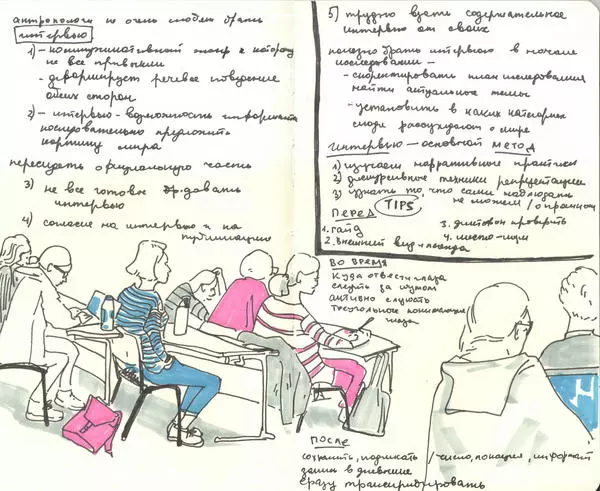 антропологи не очень любят брать
интервью
1) - коммуникативный жанр к которому
не все привыкли
- деформирует речевое поведение
обеих сторон
2) - интервью - возможность информанта
последовательно предложить
картину мира
пересидеть официальную часть
3) не все готовы давать
интервью
4) согласие на интервью и на
публикацию
5) трудно взять содержательное
интервью от своих
полезно брать интервью в начале
исследования -
- скорректировать план исследования
найти актуальные темы
- установить в каких категориях
люди рассуждают о мире
интервью - основной метод
1) изучаем нарративные практики
2) дискурсивные техники репрезентации
3) узнать то, что сами наблюдать
не можем / о прошлом
TIPS
Перед
1. гайд
2. внешний вид + легенда
3. диктофон проверить
4. место - шум
во время
куда отвести глаза
следить за шумом
активно слушать
треугольное
после
сохранить, подписать / число, локация, информант
запись в дневнике
сразу транскрибировать